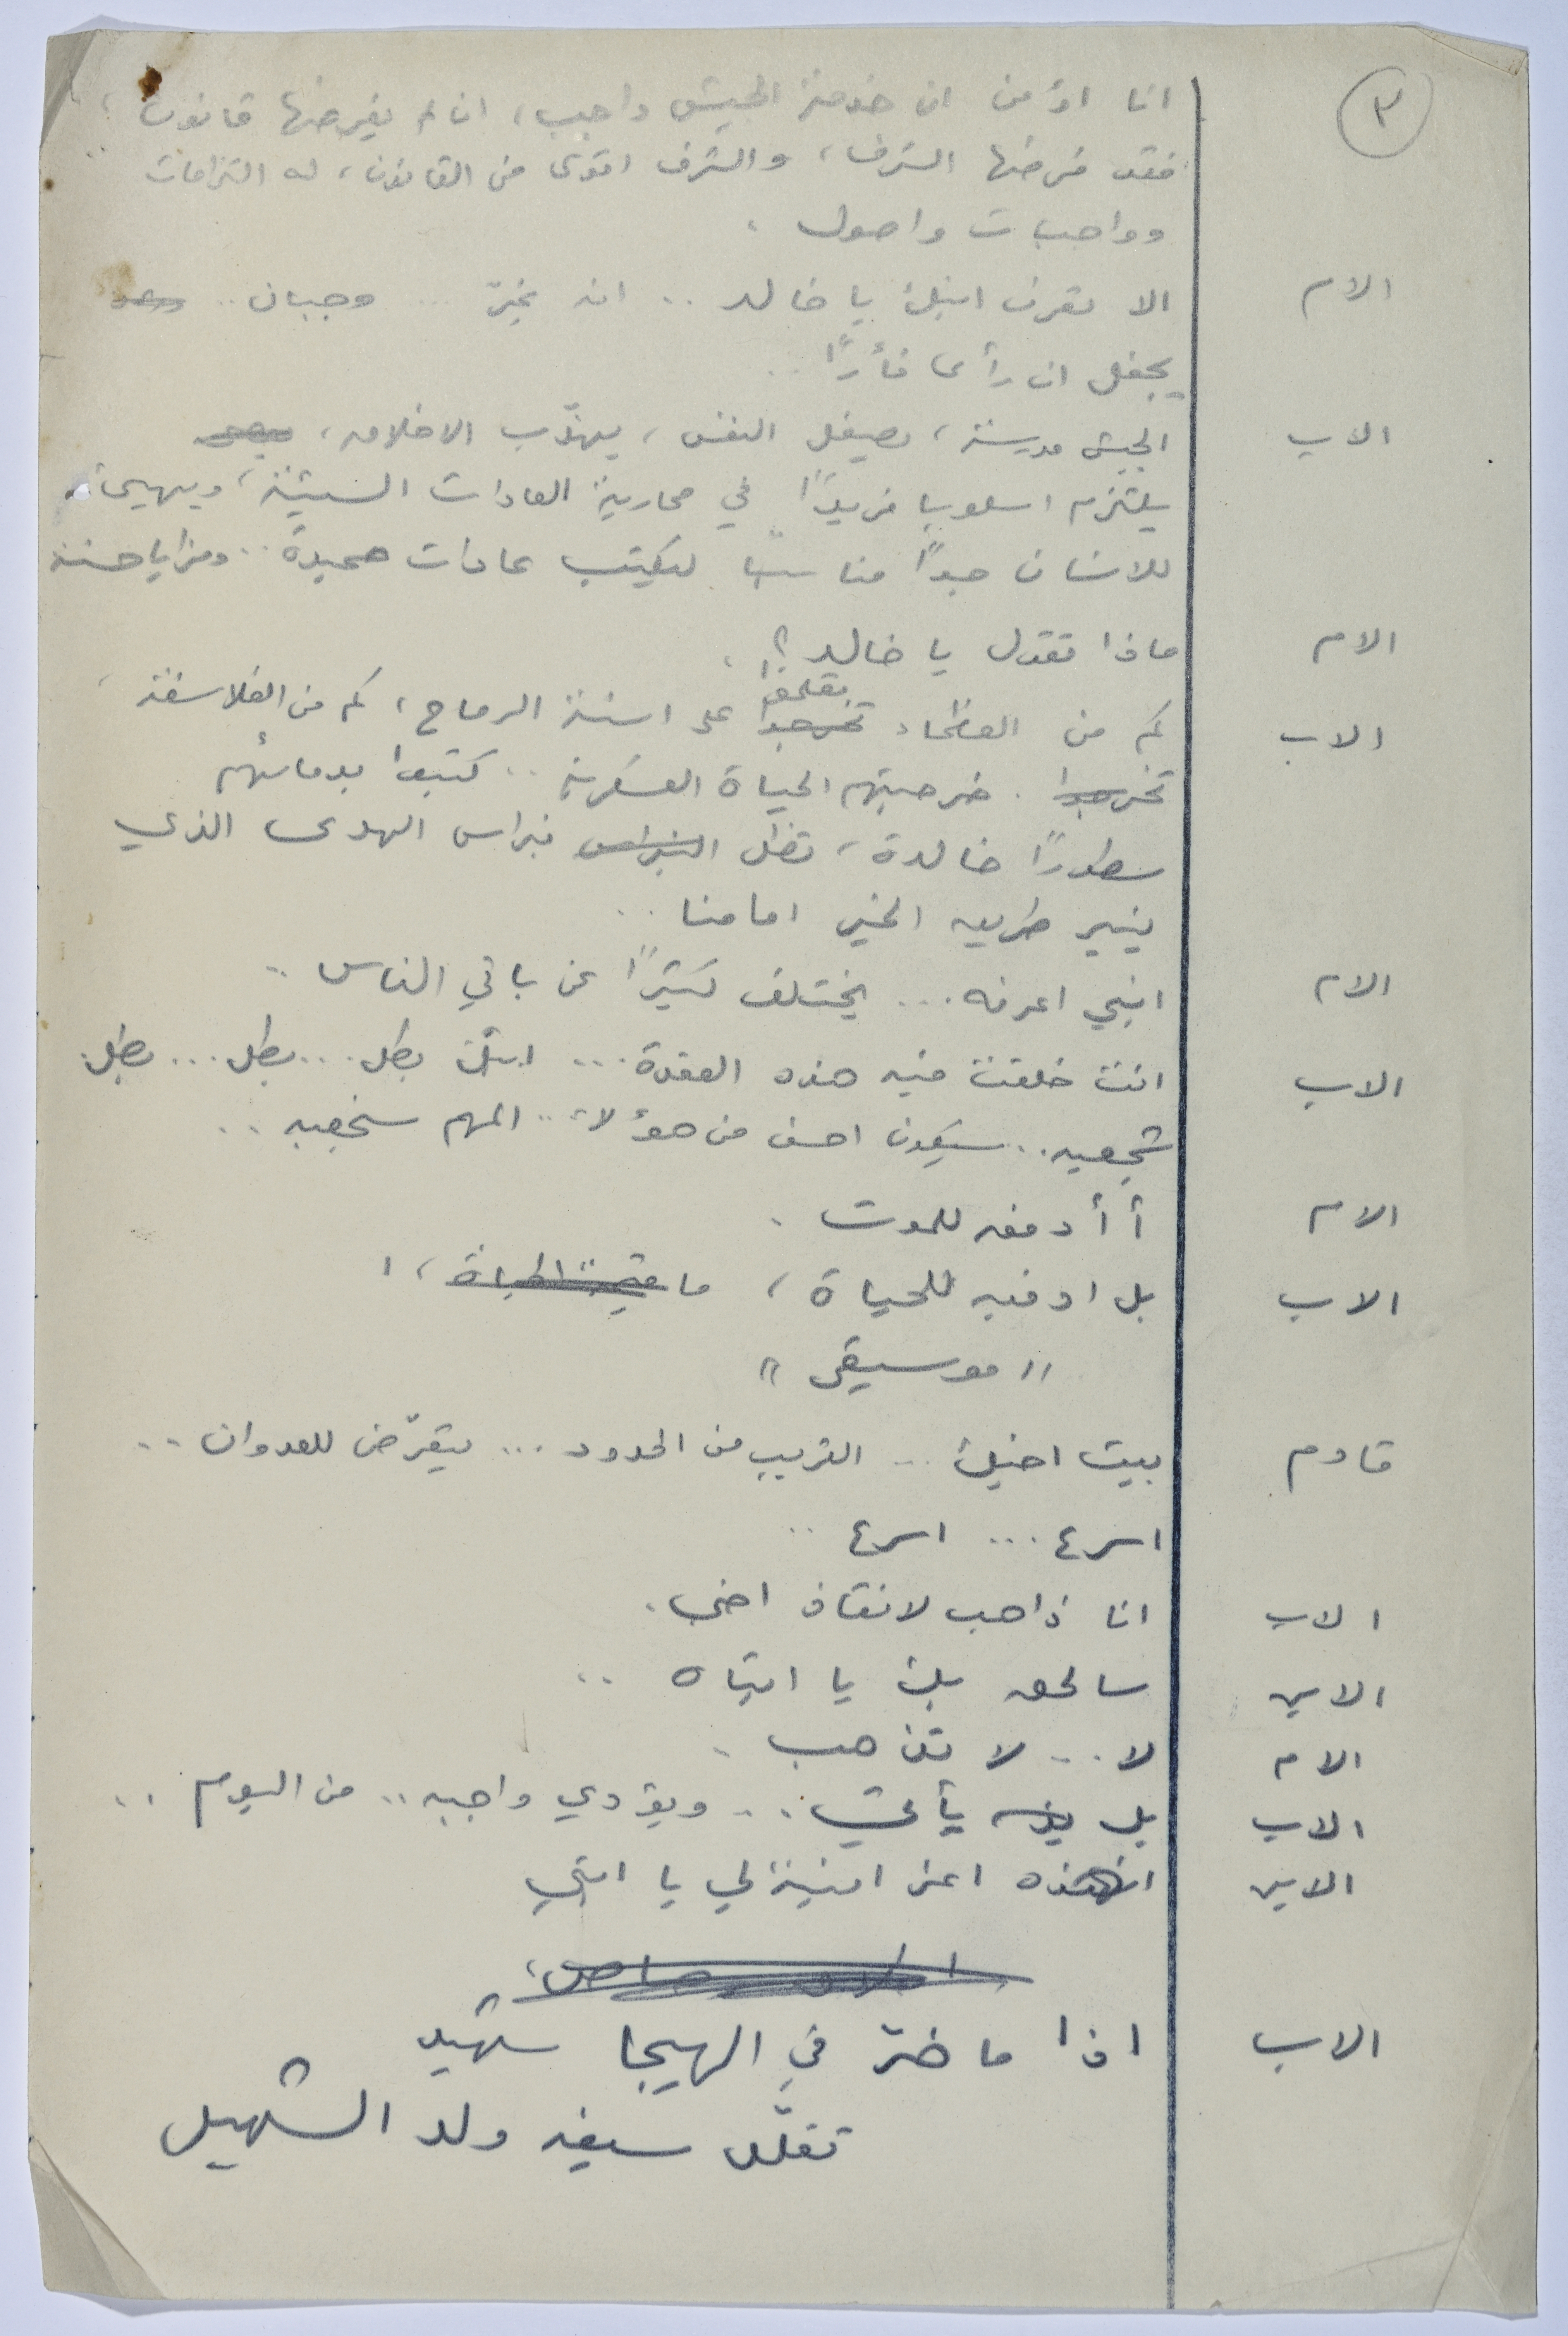 ٣
انا اؤمن ان خدمة الجيش واجب، ان لم يفرضها قانون،
فقد فرضها الشرف، والشرف اقوى من القانون، له التزامات
وواجبات واصول.
الام الا تعرف ابنك يا خالد .. انه ... وجبان ..
يجفل ان رأى فأرًا ..
الاب الجيش مدرسة، يصقل النفس، يهذّب الاخلاق،
يلتزم اسلوبا فريدًا في محاربة العادات السيئة، ويهيئ
للانسان جوًا مناسبًا ليكتسب عادات حميدة .. ومزايا حسنة
الام ماذا تقول يا خالد؟
تقلبوا
الاب كم من العظماء تخرجوا على اسنة الرماح، كم من الفلاسفة،
تخرجوا. خرجتهم الحياة العسكرية .. كتبوا بدمائهم
سطورًا خالدة، تظل النبراس نبراس الهدى الذي
ينير طريق الخير امامنا ..
الام ابني اعرفه ... يختلف كثيرًا عن باقي الناس ..
الاب انت خلقت فيه هذه العقدة ... ابنك بطل ... بطل ... بطل.
شجعيه .. سيكون احسن من هؤلاء .. المهم شجعيه ..
الام أ أدفعه للموت.
الاب بل ادفعيه للحياة، ما قيمة الحياة،
" موسيقى "
قادم بيت اخيك ... القريب من الحدود ... يتعرّض للعدوان ..
اسرع ... اسرع ..
الاب انا ذاهب لانقاذ اخي.
الابن سالحق بك يا ابتاه ..
الام لا ... لا تذهب.
الاب بل يأتي .. ويؤدي واجبه .. من اليوم ..
الابن ان هذه اعز امنية لي يا ابتي
الاب اذا ما خرّ في الهيجا شهيد
تقلّد سيفه ولد الشهيد